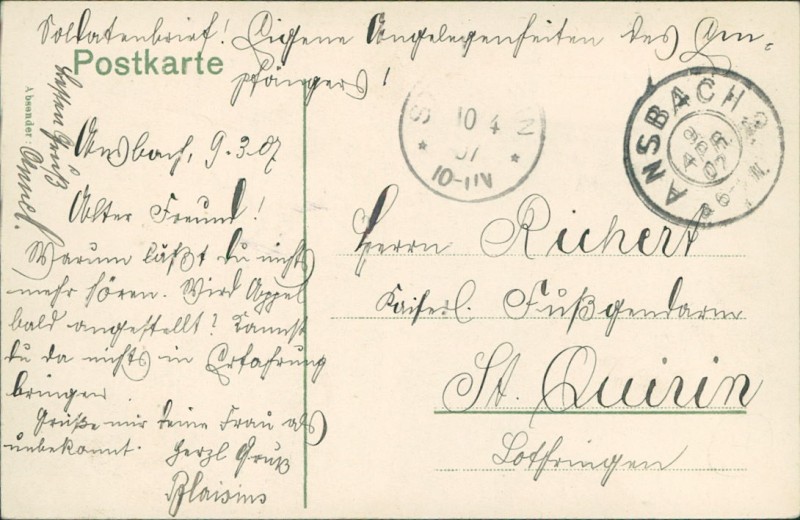 Soldatenbrief! Eigene Angelegenheiten des Em-
pfängers!
Postkarte
Absender:
besten Gruß
Ansbach, 9.3.07
Alter Freund!
Warum läßt du nichts
mehr hören. Wird Appel
bald angestellt? Kannst
du da nichts in Erfahrung
bringen.
Grüße mir deine Frau als
unbekannt. Herzl Gruß
Blaisius
10 4
07
10-11N
ANSBACH 2
APR
07
Herrn Richert
Kaiserl. Fußgendarm
St. Quirin
Lothringen